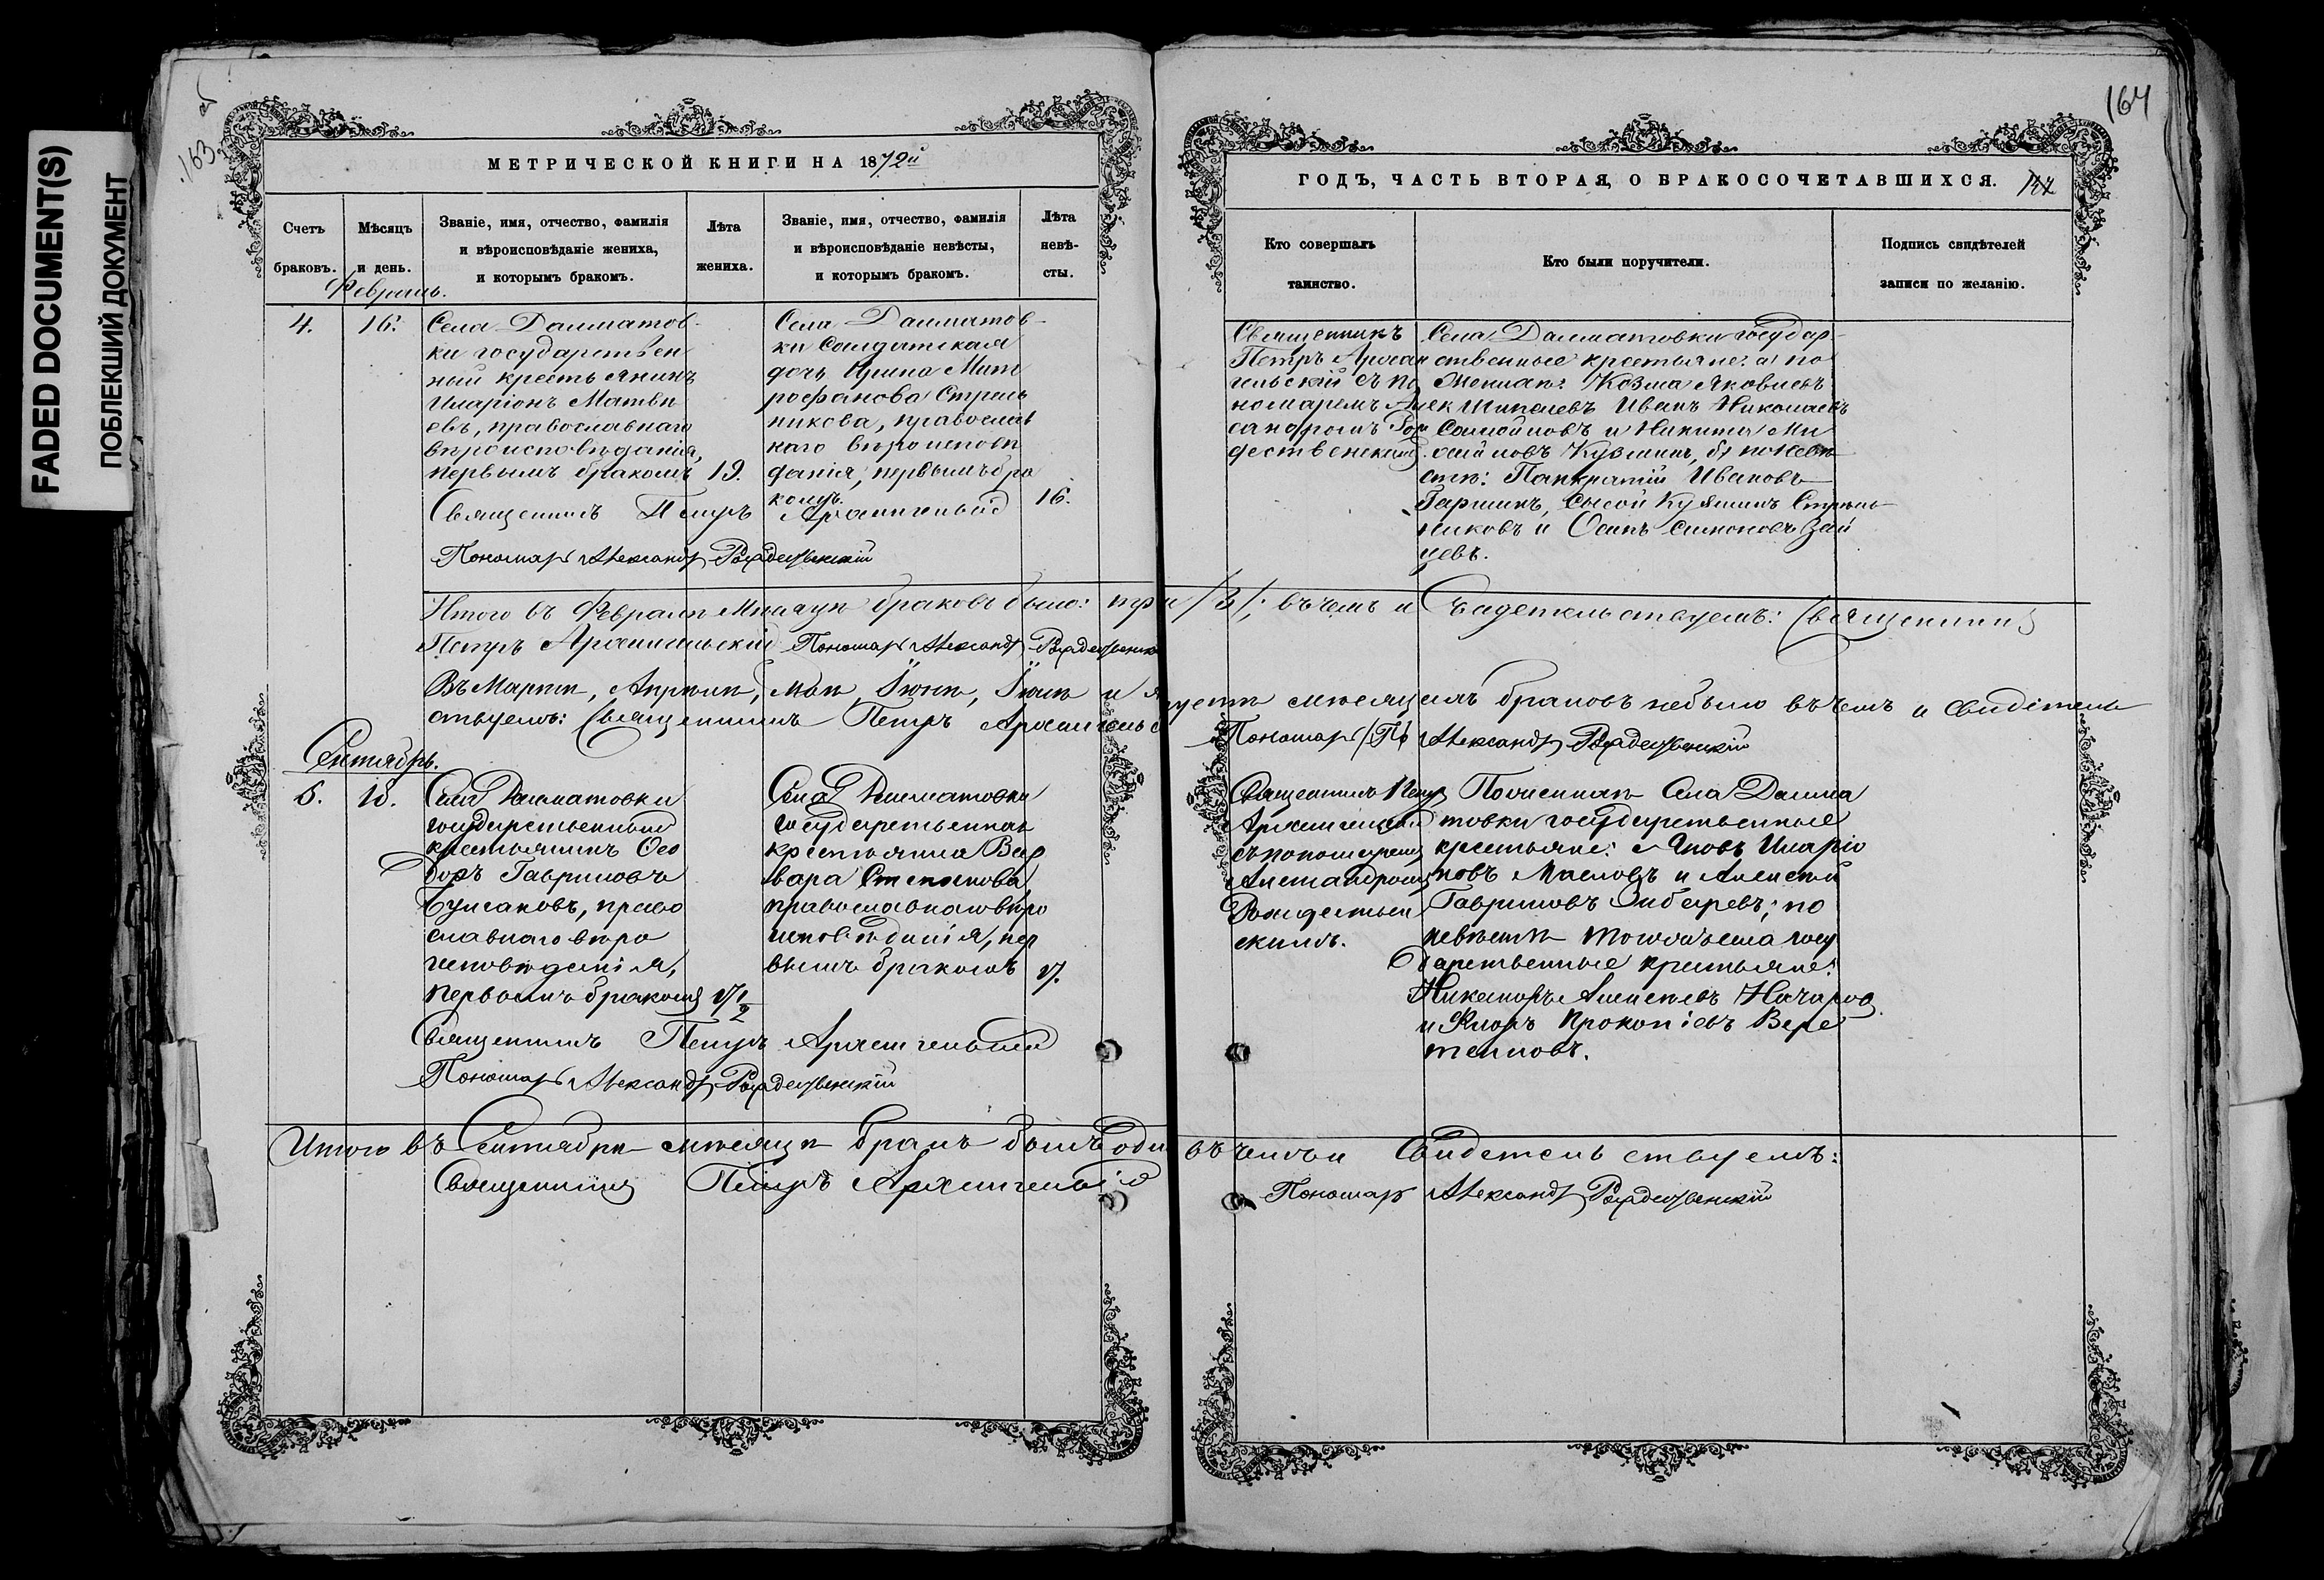 FADED DOCUMENT(S)
ПОБЛЕКШИЙ ДОКУМЕНТ
163 об
МЕТРИЧЕСКОЙ КНИГИ НА 1872й
Счетъ браковъ.
Мѣсяцъ и день.
Званіе, имя, отчество, фамилія
и вѣроисповѣданіе жениха,
и которымъ бракомъ.
Лѣта жениха.
Званіе, имя, отчество, фамилія
и вѣроисповѣданіе невѣсты,
и которымъ бракомъ.
Лѣта невѣ-
сты.
Февраль.
4.
16.
Села Далматов-
ки государствен
ный крестьянинъ
Иларіонъ Матвѣ
евъ, православнаго
вѣроисповѣданія,
первымъ бракомъ
19.
Села Далматов-
ки Солдатская
дочь Ирина Мит
рофанова Стрель
никова, православ
наго вѣроисповѣ
данія, первымъ бра
комъ.
16.
Священникъ Петръ Архангельскій
Пономарь Александръ Рождественскій
Итого въ Февралѣ мѣсяцѣ браковъ было: три /3/; въ чемъ и Свидетельствуемъ: Священникъ
Петръ Архангельскій Пономарь Александръ Рождественскій
Въ Мартѣ, Апрѣлѣ, Маѣ, Іюнѣ, Іюлѣ и Августѣ мѣсяцахъ браковъ небыло въ чемъ и свидѣтель
ствуемъ: Священникъ Петръ Архангельскій Пономарь Александръ Рождественскій
Сентябрь.
5.
10.
Села Далматовки
государственный
крестьянинъ Ѳео
доръ Гавриловъ
Булгаковъ, право
славнаго вѣро
исповѣданія,
первымъ бракомъ
17 1/2
Села Далматовки
государственная
крестьянка Вар
вара Степанова,
православнаго вѣро
исповѣданія, пер
вымъ бракомъ
17.
Священникъ Петръ Архангельскій
Пономарь Александръ Рождественскій
Итого въ Сентябрѣ мѣсяцѣ бракъ былъ одинъ въ чемъ и Свидетельствуемъ:
Священникъ Петръ Архангельскій Пономарь Александръ Рождественскій
164
ГОДЪ, ЧАСТЬ ВТОРАЯ, О БРАКОСОЧЕТАВШИХСЯ.
Кто совершалъ
таинство.
Кто были поручители.
Подпись свидѣтелей
записи по желанію.
Священникъ
Петръ Архан
гельскій съ по
номаремъ Алек
сандромъ Рож
дественскимъ.
Села Далматовки государ-
ственные крестьяне: а) по
женихѣ: Козма Яковлевъ
Шипелевъ Иванъ Николаевъ
Самойловъ и Никита Ми
хайловъ Кузминъ, б) по невѣ
стѣ: Панкратій Ивановъ
Гаршинъ, Сысой Кузминъ Стрѣль
никовъ и Осипъ Симоновъ Зай
цевъ.
Священникъ Петръ
Архангельскій
съ пономаремъ
Александромъ
Рождествен
скимъ.
По женихѣ Села Далма
товки государственные
крестьяне: Яковъ Иларіо
новъ Масловъ и Алексѣй
Гавриловъ Сибиревъ; по
невѣстѣ тогожъ села госу
дарственные крестьяне:
Никаноръ Алексѣевъ
и Флоръ Прокопіевъ Вере
тенновъ.